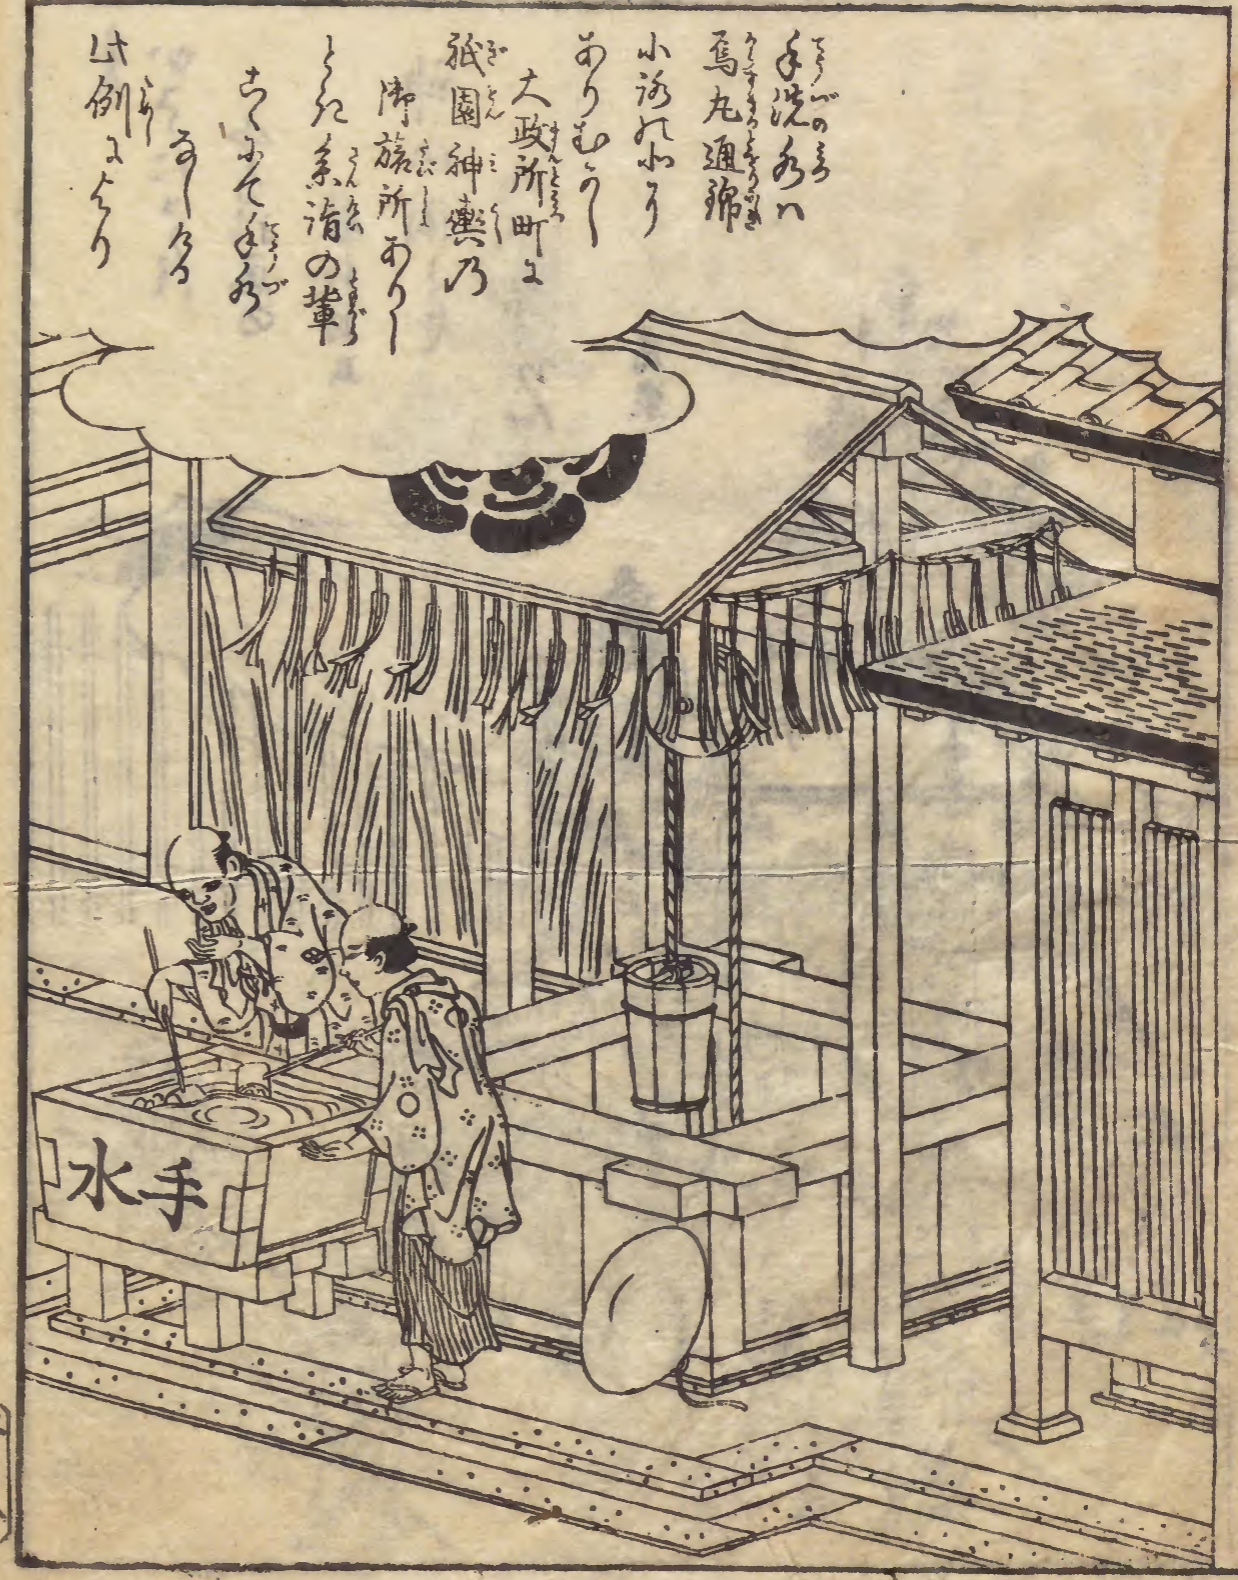 手洗水ハ
烏丸通錦
小路の北より
ありむかし
大政所町に
祇園神輿乃
御旅所ありし
とき参詣の輩
こゝにて手水
なしける
此例により
手水